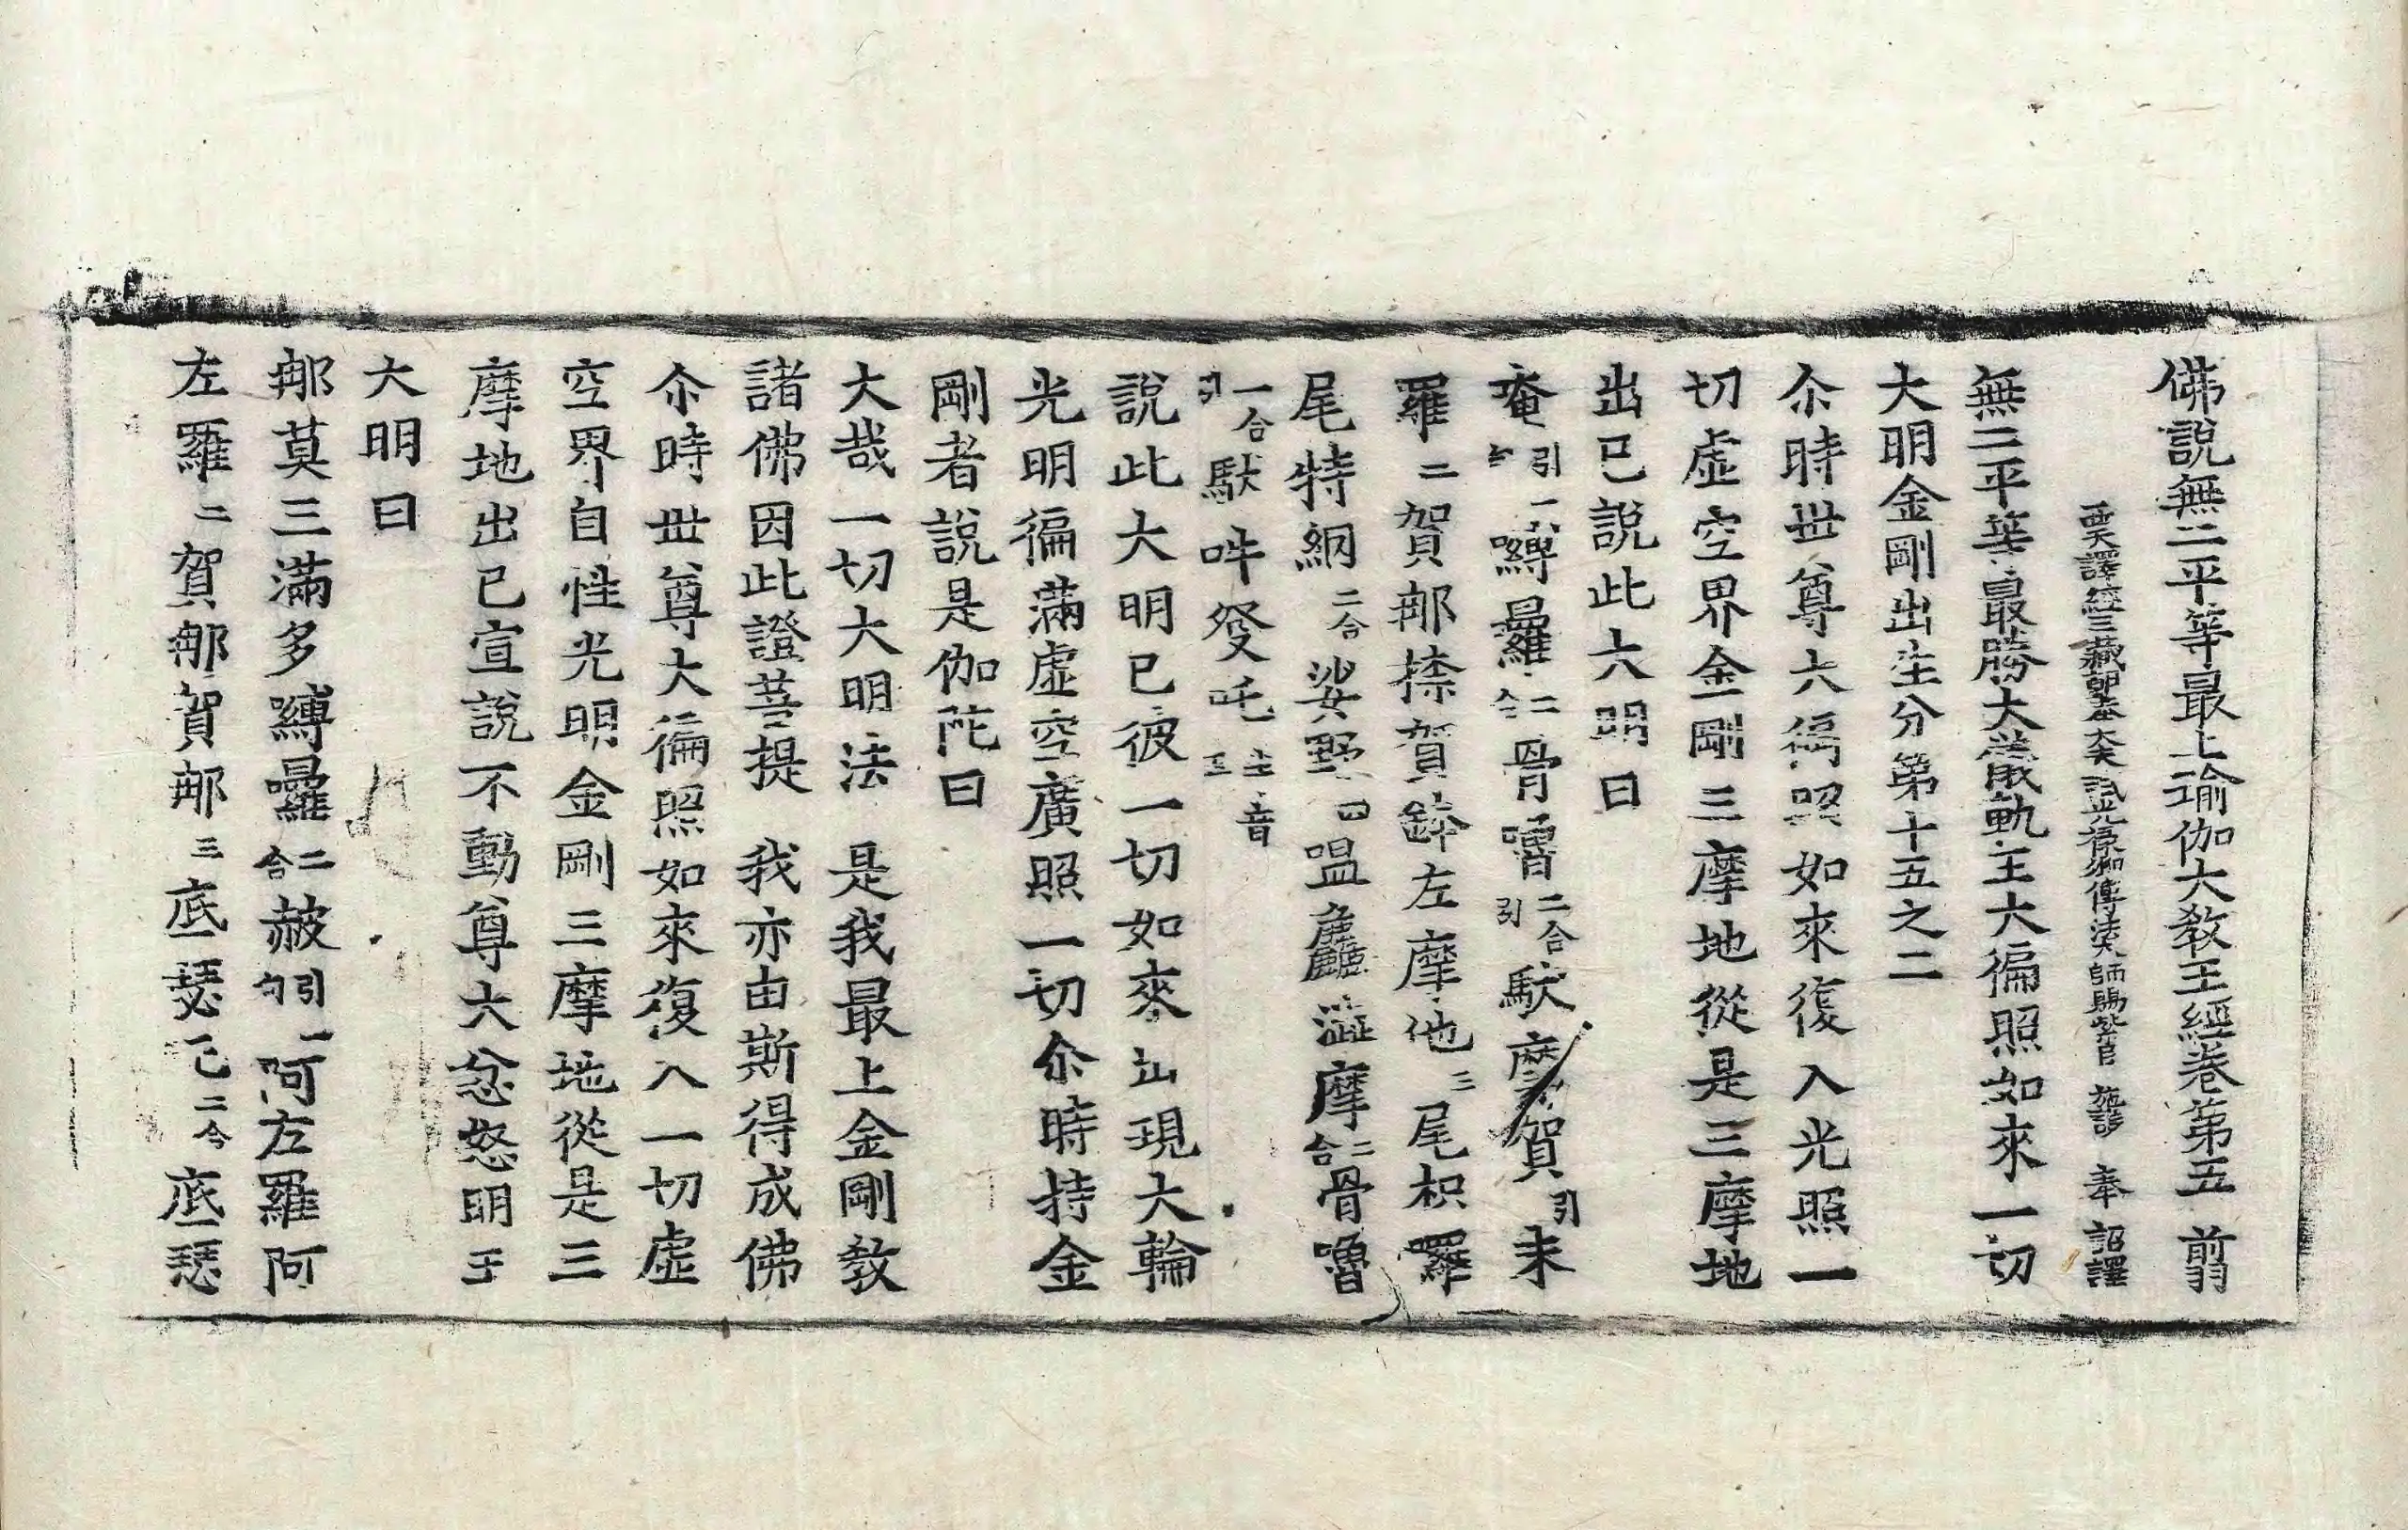 佛說無二平等最上瑜伽大教王經卷第五 翦
西天譯經三藏朝奉大夫試光祿卿傳法大師賜紫臣 施護 奉 詔譯
無二平等最勝大儀軌王大徧照如來一切
大明金剛出生分第十五之二
尒時世尊大徧照如來復入光照一
切虛空界金剛三摩地從是三摩地
出已說此大明曰
唵引一嚩曩二合骨嚕二合引馱摩賀引
羅二賀那捺賀鉢左摩他三尾枳羅
尾特網二合娑野四嗢麤澁摩二合骨嚕
引合馱吽發吒音
說此大明已彼一切如來出現大輪
光明徧滿虛空廣照一切尒時持金
剛者說是伽陀曰
大哉一切大明法 是我最上金剛教
諸佛因此證菩提 我亦由斯得成佛
尒時世尊大徧照如來復入一切虛
空界自性光明金剛三摩地從是三
摩地出已宣說不動尊大忿怒明王
大明曰
那莫三滿多嚩曩二合赧引一阿左羅阿
左羅二賀那賀那三底瑟二合底瑟